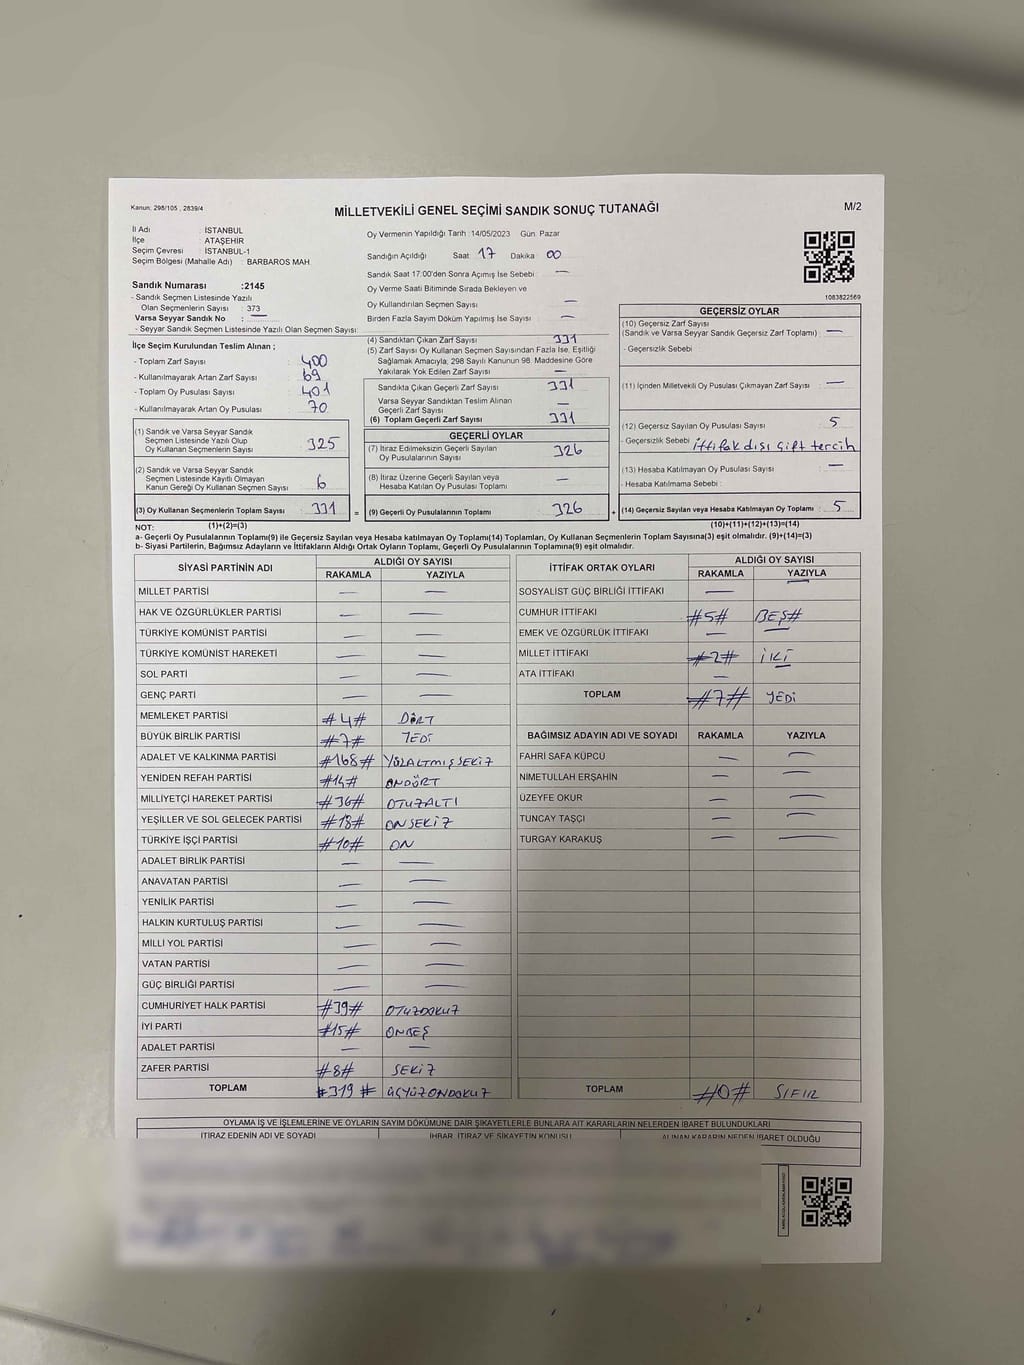 Kanun: 298/105 , 2839/4
MİLLETVEKİLİ GENEL SEÇİMİ SANDIK SONUÇ TUTANAĞI
M/2
İl Adı : İSTANBUL
İlçe : ATAŞEHİR
Seçim Çevresi : İSTANBUL-1
Seçim Bölgesi (Mahalle Adı) : BARBAROS MAH.
Sandık Numarası :2145
- Sandık Seçmen Listesinde Yazılı
Olan Seçmenlerin Sayısı : 373
Varsa Seyyar Sandık No : —
- Seyyar Sandık Seçmen Listesinde Yazılı Olan Seçmen Sayısı:
İlçe Seçim Kurulundan Teslim Alınan ;
- Toplam Zarf Sayısı : 400
- Kullanılmayarak Artan Zarf Sayısı : 69
- Toplam Oy Pusulası Sayısı : 401
- Kullanılmayarak Artan Oy Pusulası : 70
(1) Sandık ve Varsa Seyyar Sandık
Seçmen Listesinde Yazılı Olup
Oy Kullanan Seçmenlerin Sayısı : 325
(2) Sandık ve Varsa Seyyar Sandık
Seçmen Listesinde Kayıtlı Olmayan
Kanun Gereği Oy Kullanan Seçmen Sayısı : 6
(3) Oy Kullanan Seçmenlerin Toplam Sayısı : 331 =
Oy Vermenin Yapıldığı Tarih :14/05/2023 Gün: Pazar
Sandığın Açıldığı Saat 17 Dakika 00
Sandık Saat 17:00'den Sonra Açımış İse Sebebi : —
Oy Verme Saati Bitiminde Sırada Bekleyen ve
Oy Kullandırılan Seçmen Sayısı : —
Birden Fazla Sayım Döküm Yapılmış İse Sayısı : —
(4) Sandıktan Çıkan Zarf Sayısı : 331
(5) Zarf Sayısı Oy Kullanan Seçmen Sayısından Fazla İse, Eşitliği
Sağlamak Amacıyla, 298 Sayılı Kanunun 98. Maddesine Göre
Yakılarak Yok Edilen Zarf Sayısı : —
Sandıkta Çıkan Geçerli Zarf Sayısı : 331
Varsa Seyyar Sandıktan Teslim Alınan
Geçerli Zarf Sayısı : —
(6) Toplam Geçerli Zarf Sayısı : 331
GEÇERLİ OYLAR
(7) İtiraz Edilmeksizin Geçerli Sayılan
Oy Pusulalarının Sayısı : 326
(8) İtiraz Üzerine Geçerli Sayılan veya
Hesaba Katılan Oy Pusulası Toplamı : —
(9) Geçerli Oy Pusulalarının Toplamı : 326 +
1083822569
GEÇERSİZ OYLAR
(10) Geçersiz Zarf Sayısı
(Sandık ve Varsa Seyyar Sandık Geçersiz Zarf Toplamı) : —
- Geçersizlik Sebebi :
(11) İçinden Milletvekili Oy Pusulası Çıkmayan Zarf Sayısı : —
(12) Geçersiz Sayılan Oy Pusulası Sayısı : 5
- Geçersizlik Sebebi : İttifak dışı çift tercih
(13) Hesaba Katılmayan Oy Pusulası Sayısı : —
- Hesaba Katılmama Sebebi :
(14) Geçersiz Sayılan veya Hesaba Katılmayan Oy Toplamı : 5
NOT: (1)+(2)=(3) (10)+(11)+(12)+(13)=(14)
a- Geçerli Oy Pusulalarının Toplamı(9) ile Geçersiz Sayılan veya Hesaba Katılmayan Oy Toplamı(14) Toplamları, Oy Kullanan Seçmenlerin Toplam Sayısına(3) eşit olmalıdır. (9)+(14)=(3)
b- Siyasi Partilerin, Bağımsız Adayların ve İttifakların Aldığı Ortak Oyların Toplamı, Geçerli Oy Pusulalarının Toplamına(9) eşit olmalıdır.
SİYASİ PARTİNİN ADI ALDIĞI OY SAYISI
RAKAMLA YAZIYLA
MİLLET PARTİSİ — —
HAK VE ÖZGÜRLÜKLER PARTİSİ — —
TÜRKİYE KOMÜNİST PARTİSİ — —
TÜRKİYE KOMÜNİST HAREKETİ — —
SOL PARTİ — —
GENÇ PARTİ — —
MEMLEKET PARTİSİ #4# DÖRT
BÜYÜK BİRLİK PARTİSİ #7# YEDİ
ADALET VE KALKINMA PARTİSİ #168# YÜZALTMIŞSEKİZ
YENİDEN REFAH PARTİSİ #14# ONDÖRT
MİLLİYETÇİ HAREKET PARTİSİ #36# OTUZALTI
YEŞİLLER VE SOL GELECEK PARTİSİ #18# ONSEKİZ
TÜRKİYE İŞÇİ PARTİSİ #10# ON
ADALET BİRLİK PARTİSİ — —
ANAVATAN PARTİSİ — —
YENİLİK PARTİSİ — —
HALKIN KURTULUŞ PARTİSİ — —
MİLLİ YOL PARTİSİ — —
VATAN PARTİSİ — —
GÜÇ BİRLİĞİ PARTİSİ — —
CUMHURİYET HALK PARTİSİ #39# OTUZDOKUZ
İYİ PARTİ #15# ONBEŞ
ADALET PARTİSİ — —
ZAFER PARTİSİ #8# SEKİZ
TOPLAM #319# ÜÇYÜZONDOKUZ
İTTİFAK ORTAK OYLARI ALDIĞI OY SAYISI
RAKAMLA YAZIYLA
SOSYALİST GÜÇ BİRLİĞİ İTTİFAKI — —
CUMHUR İTTİFAKI #5# BEŞ#
EMEK VE ÖZGÜRLÜK İTTİFAKI — —
MİLLET İTTİFAKI #2# İKİ
ATA İTTİFAKI — —
TOPLAM #7# YEDİ
BAĞIMSIZ ADAYIN ADI VE SOYADI RAKAMLA YAZIYLA
FAHRİ SAFA KÜPCÜ — —
NİMETULLAH ERŞAHİN — —
ÜZEYFE OKUR — —
TUNCAY TAŞÇI — —
TURGAY KARAKUŞ — —
TOPLAM #0# SIFIR
OYLAMA İŞ VE İŞLEMLERİNE VE OYLARIN SAYIM DÖKÜMÜNE DAİR ŞİKAYETLERLE BUNLARA AİT KARARLARIN NELERDEN İBARET BULUNDUKLARI
İTİRAZ EDENİN ADI VE SOYADI İHBAR, İTİRAZ VE ŞİKAYETİN KONUSU ALINAN KARARIN NEDEN İBARET OLDUĞU